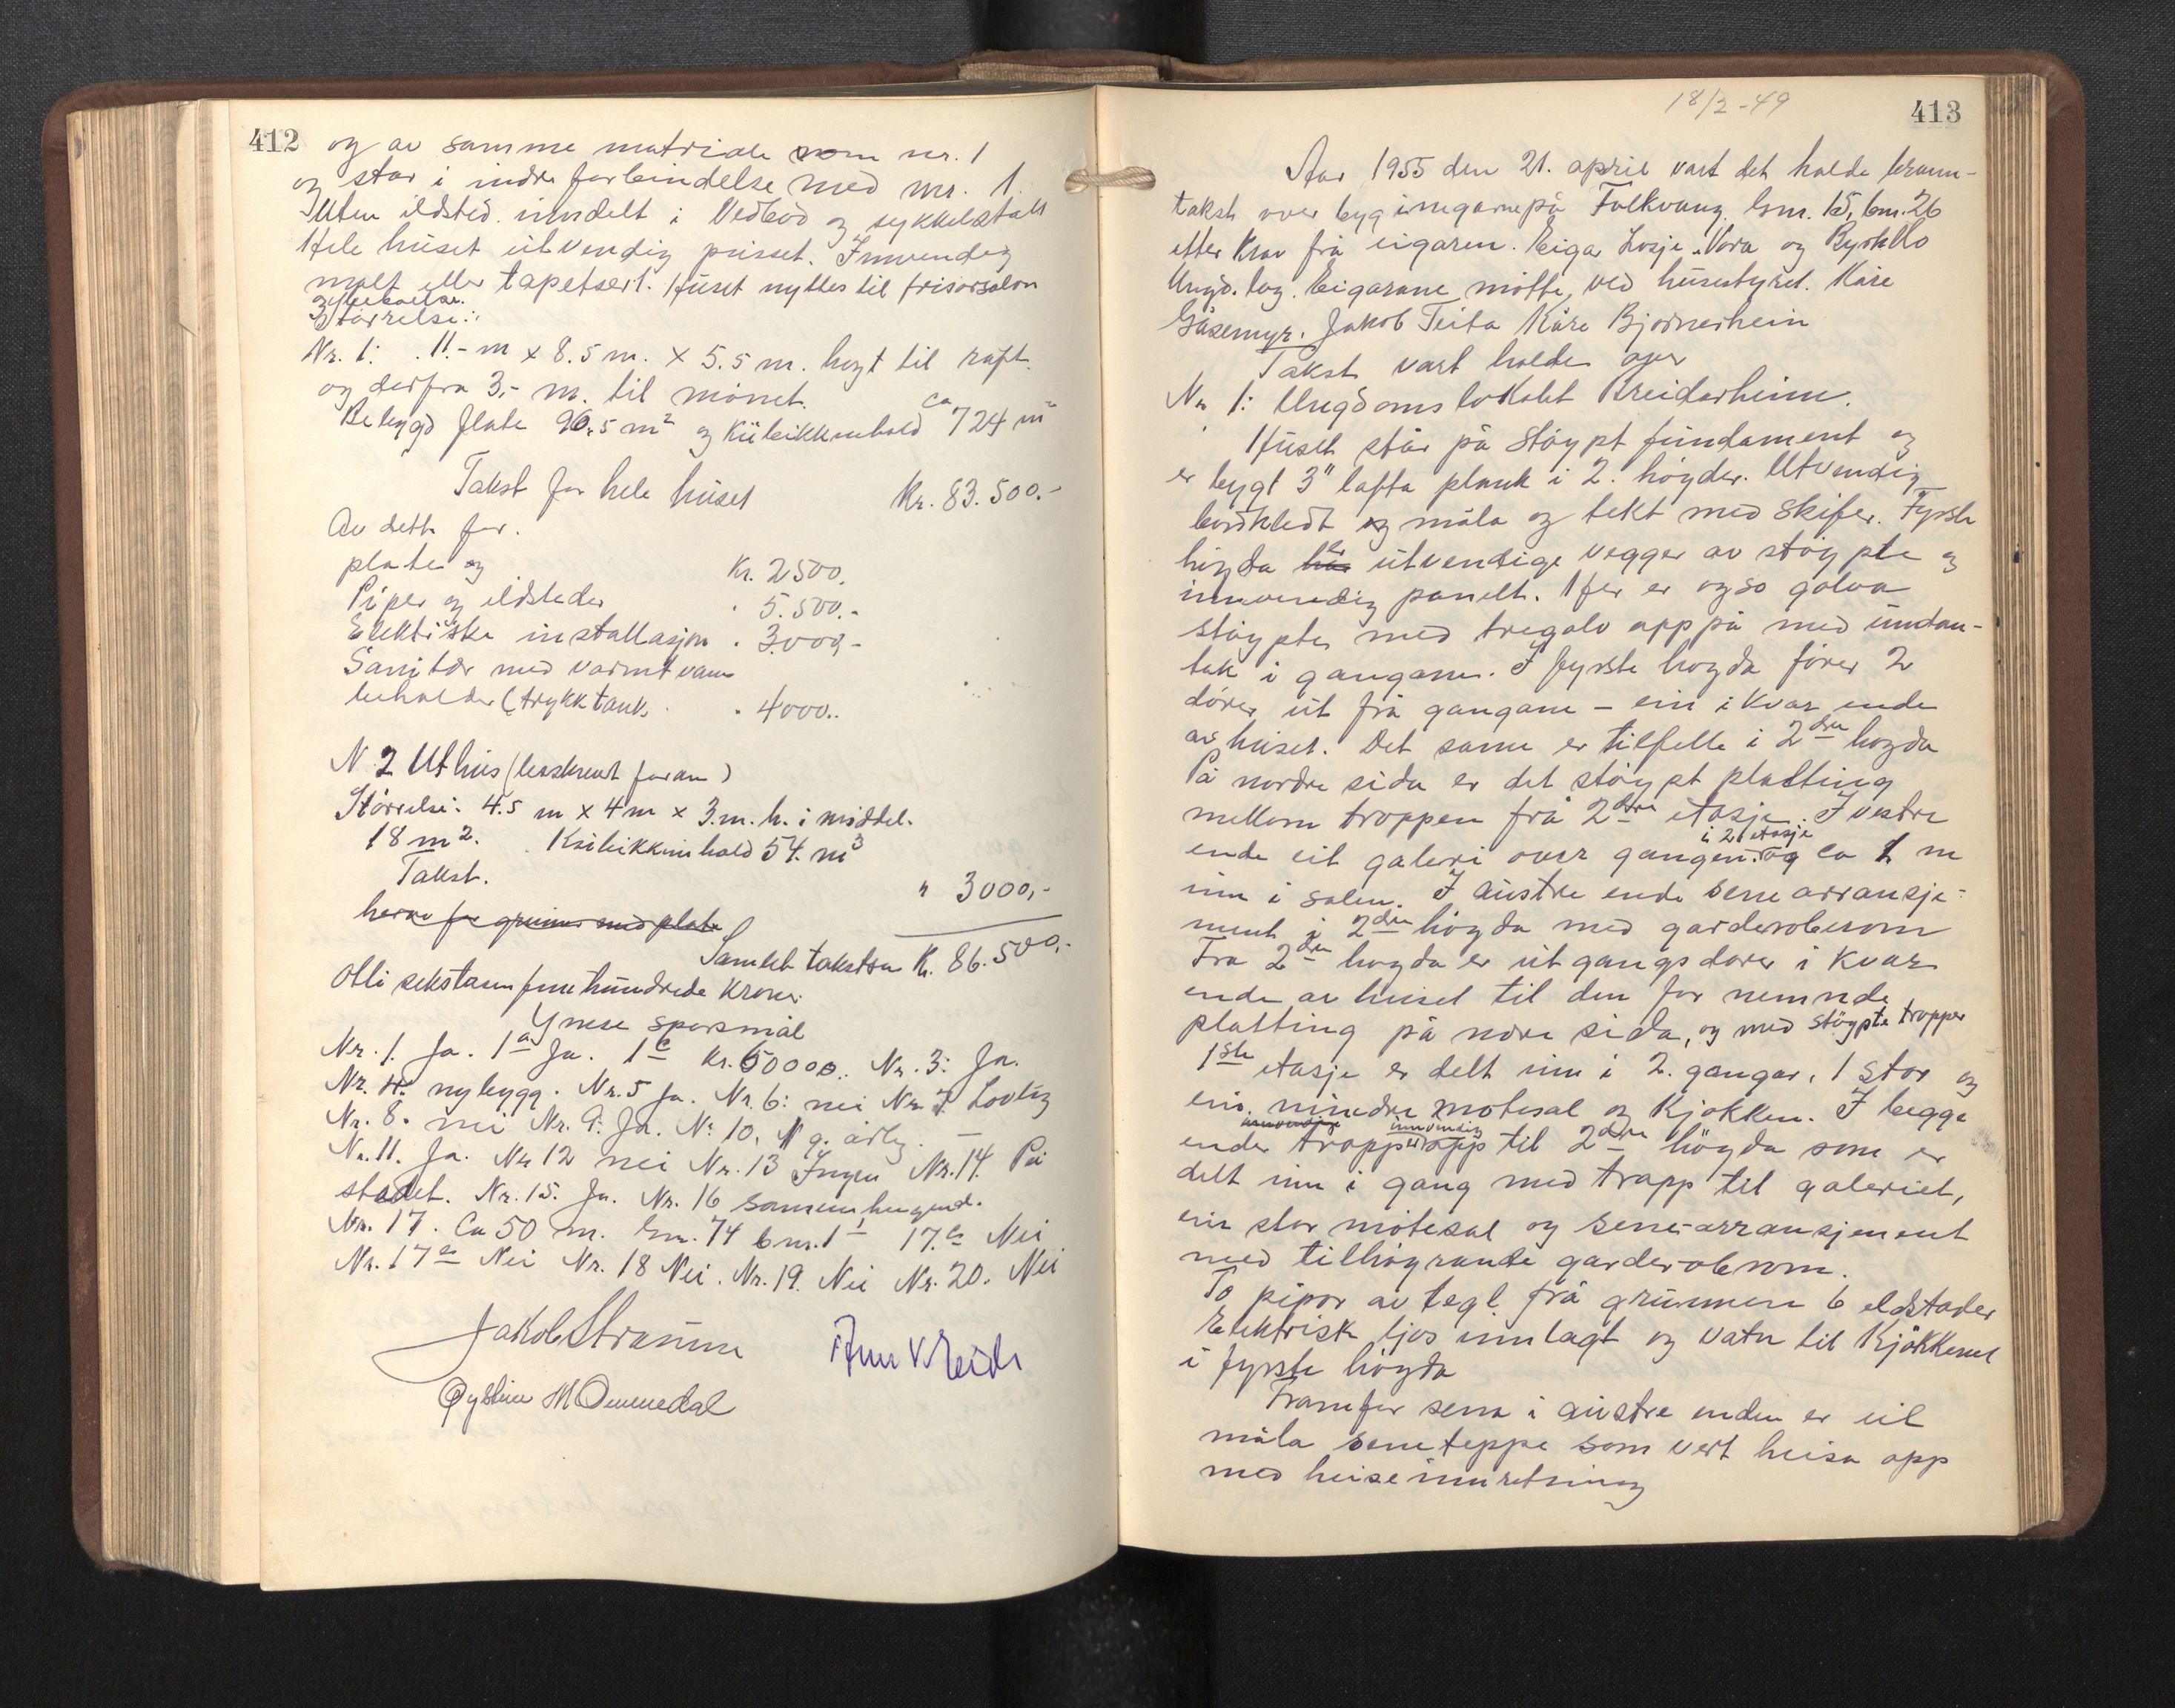 412
og av samme matriale som nr. 1
og står i indre forbindelse med nr. 1.
Uten ildsted. inndelt i Vedbod og sykkelstall
Hele huset utvendig pusset. Innvendig
malt eller tapetsert. Huset nyttes til frisørsalon
Størrelse:
Nr. 1: 11.- m x 8.5 m. x 5.5 m. høgt til raft.
og derfra 3,- m. til mønet.
Bebygd flate 90,5 m² og Kubikkinhold ca 724 m³
Takst for hele huset Kr. 83.500.-
Av dette for.
plate og Kr. 2500.
Piper og ildsteder " 5.500.-
Elektiske installasjon " 3.000,-
Sanitær med varmtvann
beholder (trykktank " 4000..
N. 2 Uthus (beskrevet foran)
Størrelse: 4.5 m x 4 m x 3. m. h. i middel.
18 m². Kubikkinhold 54. m³
Takst. " 3000,-
herav for grunnmur med plate
Samlet takstsum Kr. 86.500,-
Otti sekstusen femhundrede Kroner.
Ymse spørsmål
Nr. 1. Ja. 1a Ja. 1c Kr. 60000. Nr. 3: Ja.
Nr. 4. nybygg. Nr. 5 Ja. Nr. 6: nei Nr. 7 Lovlig
Nr. 8. nei Nr. 9. Ja. Nr. 10, årlig. —
Nr. 11. Ja. Nr 12 nei Nr. 13 Ingen Nr. 14. På
stedet. Nr. 15. Ja. Nr. 16 sammenhengend.
Nr. 17. Ca 50 m. Gnr. 74 bnr. 1 17. Nei
Nr. 17 Nei Nr. 18 Nei. Nr. 19. Nei Nr. 20. Nei
Jakob Stramm
Øystein M Ommedal
18/2-49
413
Aar 1955 den 21. april vart det halde brann-
takst over bygningane på Folkvang Gnr. 15, bnr. 26
etter Krav frå eigaren. Eigar Losje Vora og Byrkllo
Ungd. lag. Eigarane møtte, ved husestyret. Kåre
Gåsemyr. Jakob Teita Kåre Bjørnerheim
Takst vart halde over
Nr 1: Ungdomslokalet Breidarheim.
Huset står på støypt fundament og
er bygt 3" lafta plank i 2. høgder. Utvendig
bordkledt og måla og tekt med skifer. Fyrste
høgda har er utvendige vegger av støypte og
innvendig panelt. Her er ogso golva
støypte med tregolv oppå med undan-
tak i gangane. I fyrste høgda fører 2
dører ut frå gangane – ein i kvar ende
av huset. Det same er tilfelle i 2dre høgda
På nordre sida er det støypt platting
mellom troppen frå 2dre etasje. I vestre
ende eit galeri over gangen i 2. etasje og ca 1 m
inn i salen. I austre ende senearransje-
ment i 2dre høgda med garderoberom
Fra 2dre høgda er utgangsdører i kvar
ende av huset til den før nemnde
platting på nore sida, og med støypte tropper
1ste etasje er delt inn i 2. gangar, 1 stor og
ein mindre møtesal og Kjøkken. I begge
ender innvendig tropper innvendig opp til 2dre høgda som er
delt inn i gang med trapp til galeriet,
ein stor møtesal og sene-arransjement
med tilhøyrande garderobrom.
To pipor av tegl. frå grunnen 6 eldstader
Elektrisk ljos innlagt og vatn til Kjøkkenet
i fyrste høgda
Framfor sena i austre enden er eit
måla seneteppe som vert heisa opp
med heiseinnretning